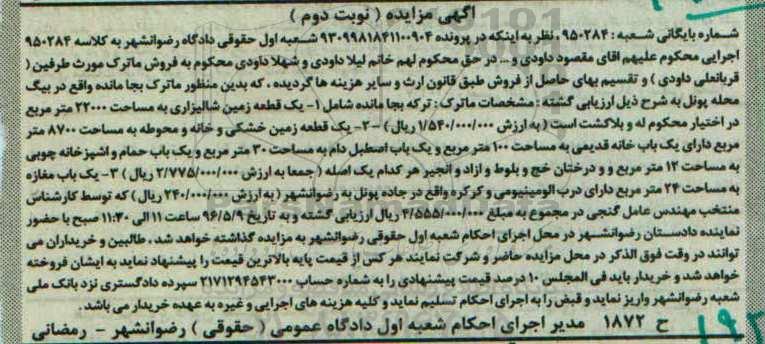 آگهی مزایده ( نوبت دوم )
شماره بایگانی شعبه : ۹۵۰۲۸۴ ، نظر به اینکه در پرونده ۹۳۰۹۹۸۱۸۴۱۱۰۰۹۰۴ شعبه اول حقوقی دادگاه رضوانشهر به کلاسه ۹۵۰۲۸۴
اجرایی محکوم علیهم اقای مقصود داودی و ... در حق محکوم لهم خانم لیلا داودی و شهلا داودی محکوم به فروش ماترک مورث طرفین (
قربانعلی داودی ) و تقسیم بهای حاصل از فروش طبق قانون ارث و سایر هزینه ها گردیده ، که بدین منظور ماترک بجا مانده واقع در بیگ
محله پونل به شرح ذیل ارزیابی گشته : مشخصات ماترک : ترکه بجا مانده شامل ۱- یک قطعه زمین شالیزاری به مساحت ۲۲۰۰۰ متر مربع
در اختیار محکوم له و بلاکشت است ( به ارزش ۱/۵۴۰/۰۰۰/۰۰۰ ریال ) -۲- یک قطعه زمین خشکی و خانه و محوطه به مساحت ۸۷۰۰ متر
مربع دارای یک باب خانه قدیمی به مساحت ۱۰۰ متر مربع و یک باب اصطبل دام به مساحت ۳۰ متر مربع و یک باب حمام و اشپزخانه چوبی
به مساحت ۱۲ متر مربع و و درختان خج و بلوط و ازاد و انجیر هر کدام یک اصله ( جمعا به ارزش ۲/۷۷۵/۰۰۰/۰۰۰ ریال ) ۳- یک باب مغازه
به مساحت ۲۴ متر مربع دارای درب الومینیومی و کرکره واقع در جاده پونل به رضوانشهر ( به ارزش ۲۴۰/۰۰۰/۰۰۰ ریال ) که توسط کارشناس
منتخب مهندس عامل گنجی در مجموع به مبلغ ۴/۵۵۵/۰۰۰/۰۰۰ ریال ارزیابی گشته و به تاریخ ۹۶/۵/۹ ساعت ۱۱ الی ۱۱:۳۰ صبح با حضور
نماینده دادستان رضوانشهر در محل اجرای احکام شعبه اول حقوقی رضوانشهر به مزایده گذاشته خواهد شد ، طالبین و خریداران می
توانند در وقت فوق الذکر در محل مزایده حاضر و شرکت نمایند هر کس از قیمت پایه بالاترین قیمت را پیشنهاد نماید به ایشان فروخته
خواهد شد و خریدار باید فی المجلس ۱۰ درصد قیمت پیشنهادی را به شماره حساب ۲۱۷۱۲۹۴۵۴۳۰۰۰ سپرده دادگستری نزد بانک ملی
شعبه رضوانشهر واریز نماید و قبض را به اجرای احکام تسلیم نماید و کلیه هزینه های اجرایی و غیره به عهده خریدار می باشد .
ح ۱۸۷۲ مدیر اجرای احکام شعبه اول دادگاه عمومی ( حقوقی ) رضوانشهر - رمضانی